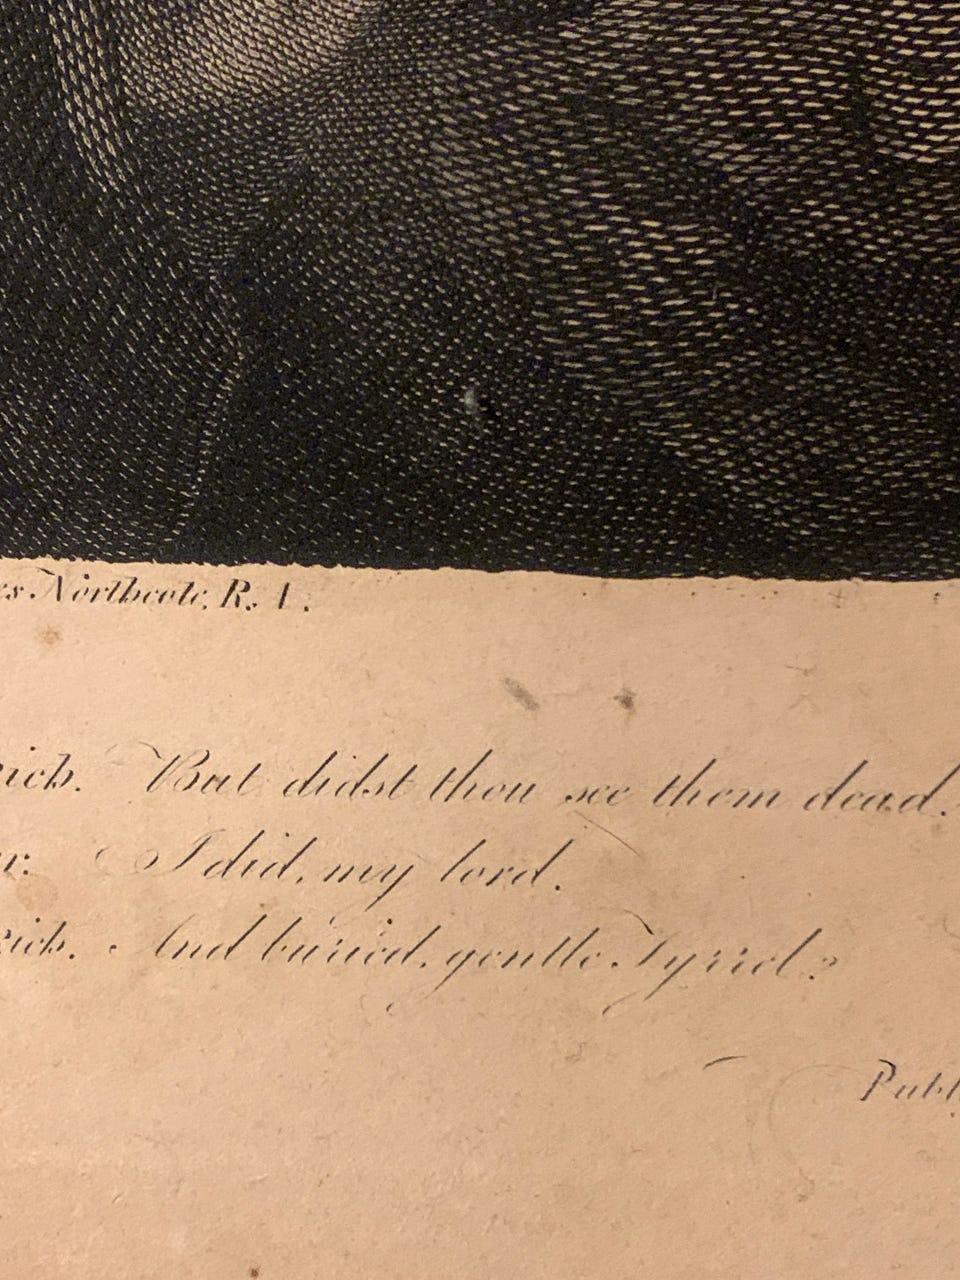 es Northcote, R. A.
Rich. But didst thou see them dead.
yr: I did, my lord.
Rich. And buried, gentle Tyrrel?
Publ